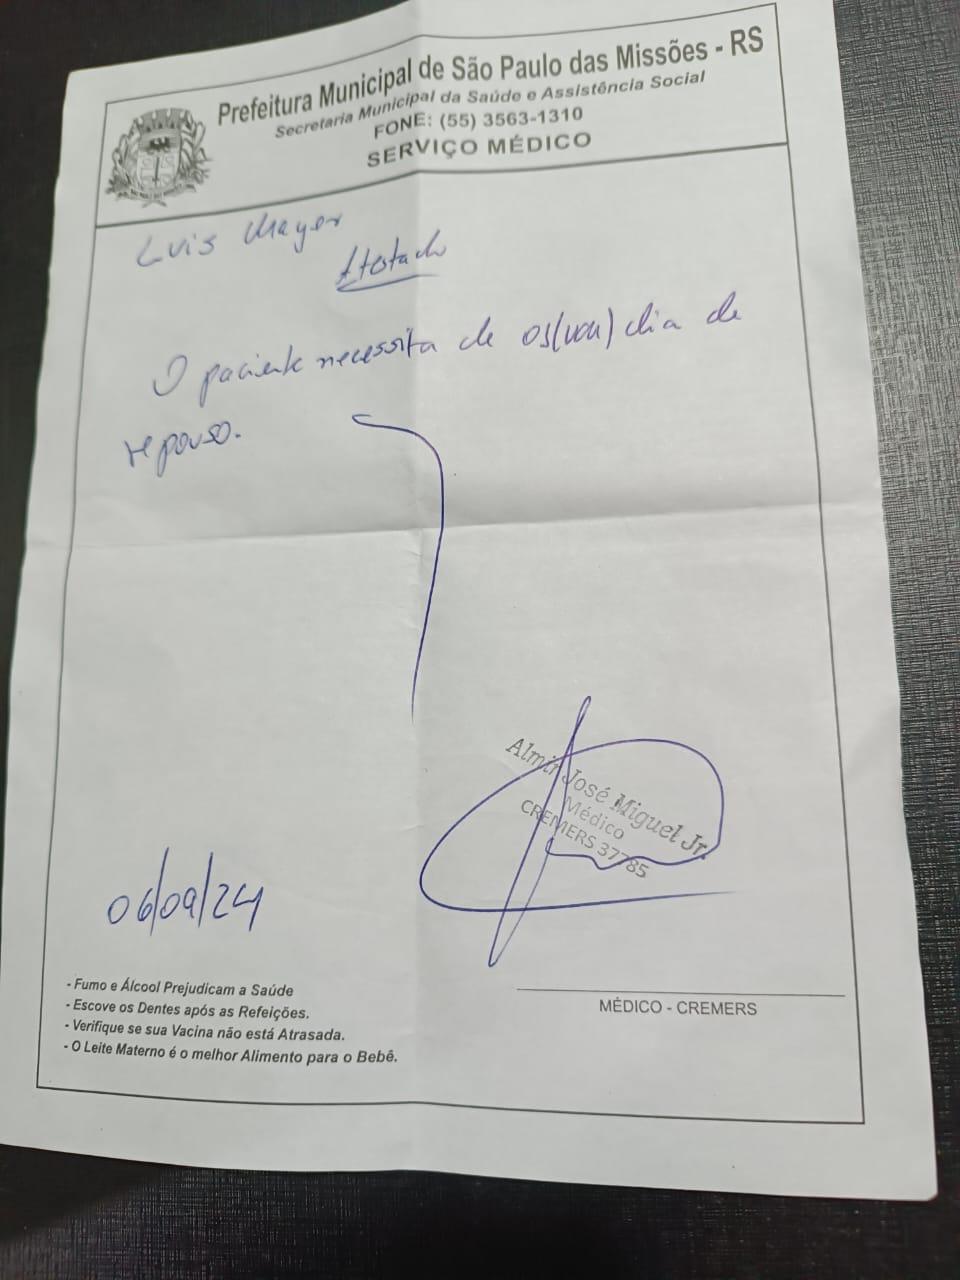 Prefeitura Municipal de São Paulo das Missões - RS
Secretaria Municipal da Saúde e Assistência Social
FONE: (55) 3563-1310
SERVIÇO MÉDICO
Luis Mayer
Atestado
O paciente necessita de dia de
repouso.
Almir José Miguel Jr.
Médico
CREMERS 37785
06/09/24
- Fumo e Álcool Prejudicam a Saúde
- Escove os Dentes após as Refeições.
- Verifique se sua Vacina não está Atrasada.
- O Leite Materno é o melhor Alimento para o Bebê.
MÉDICO - CREMERS